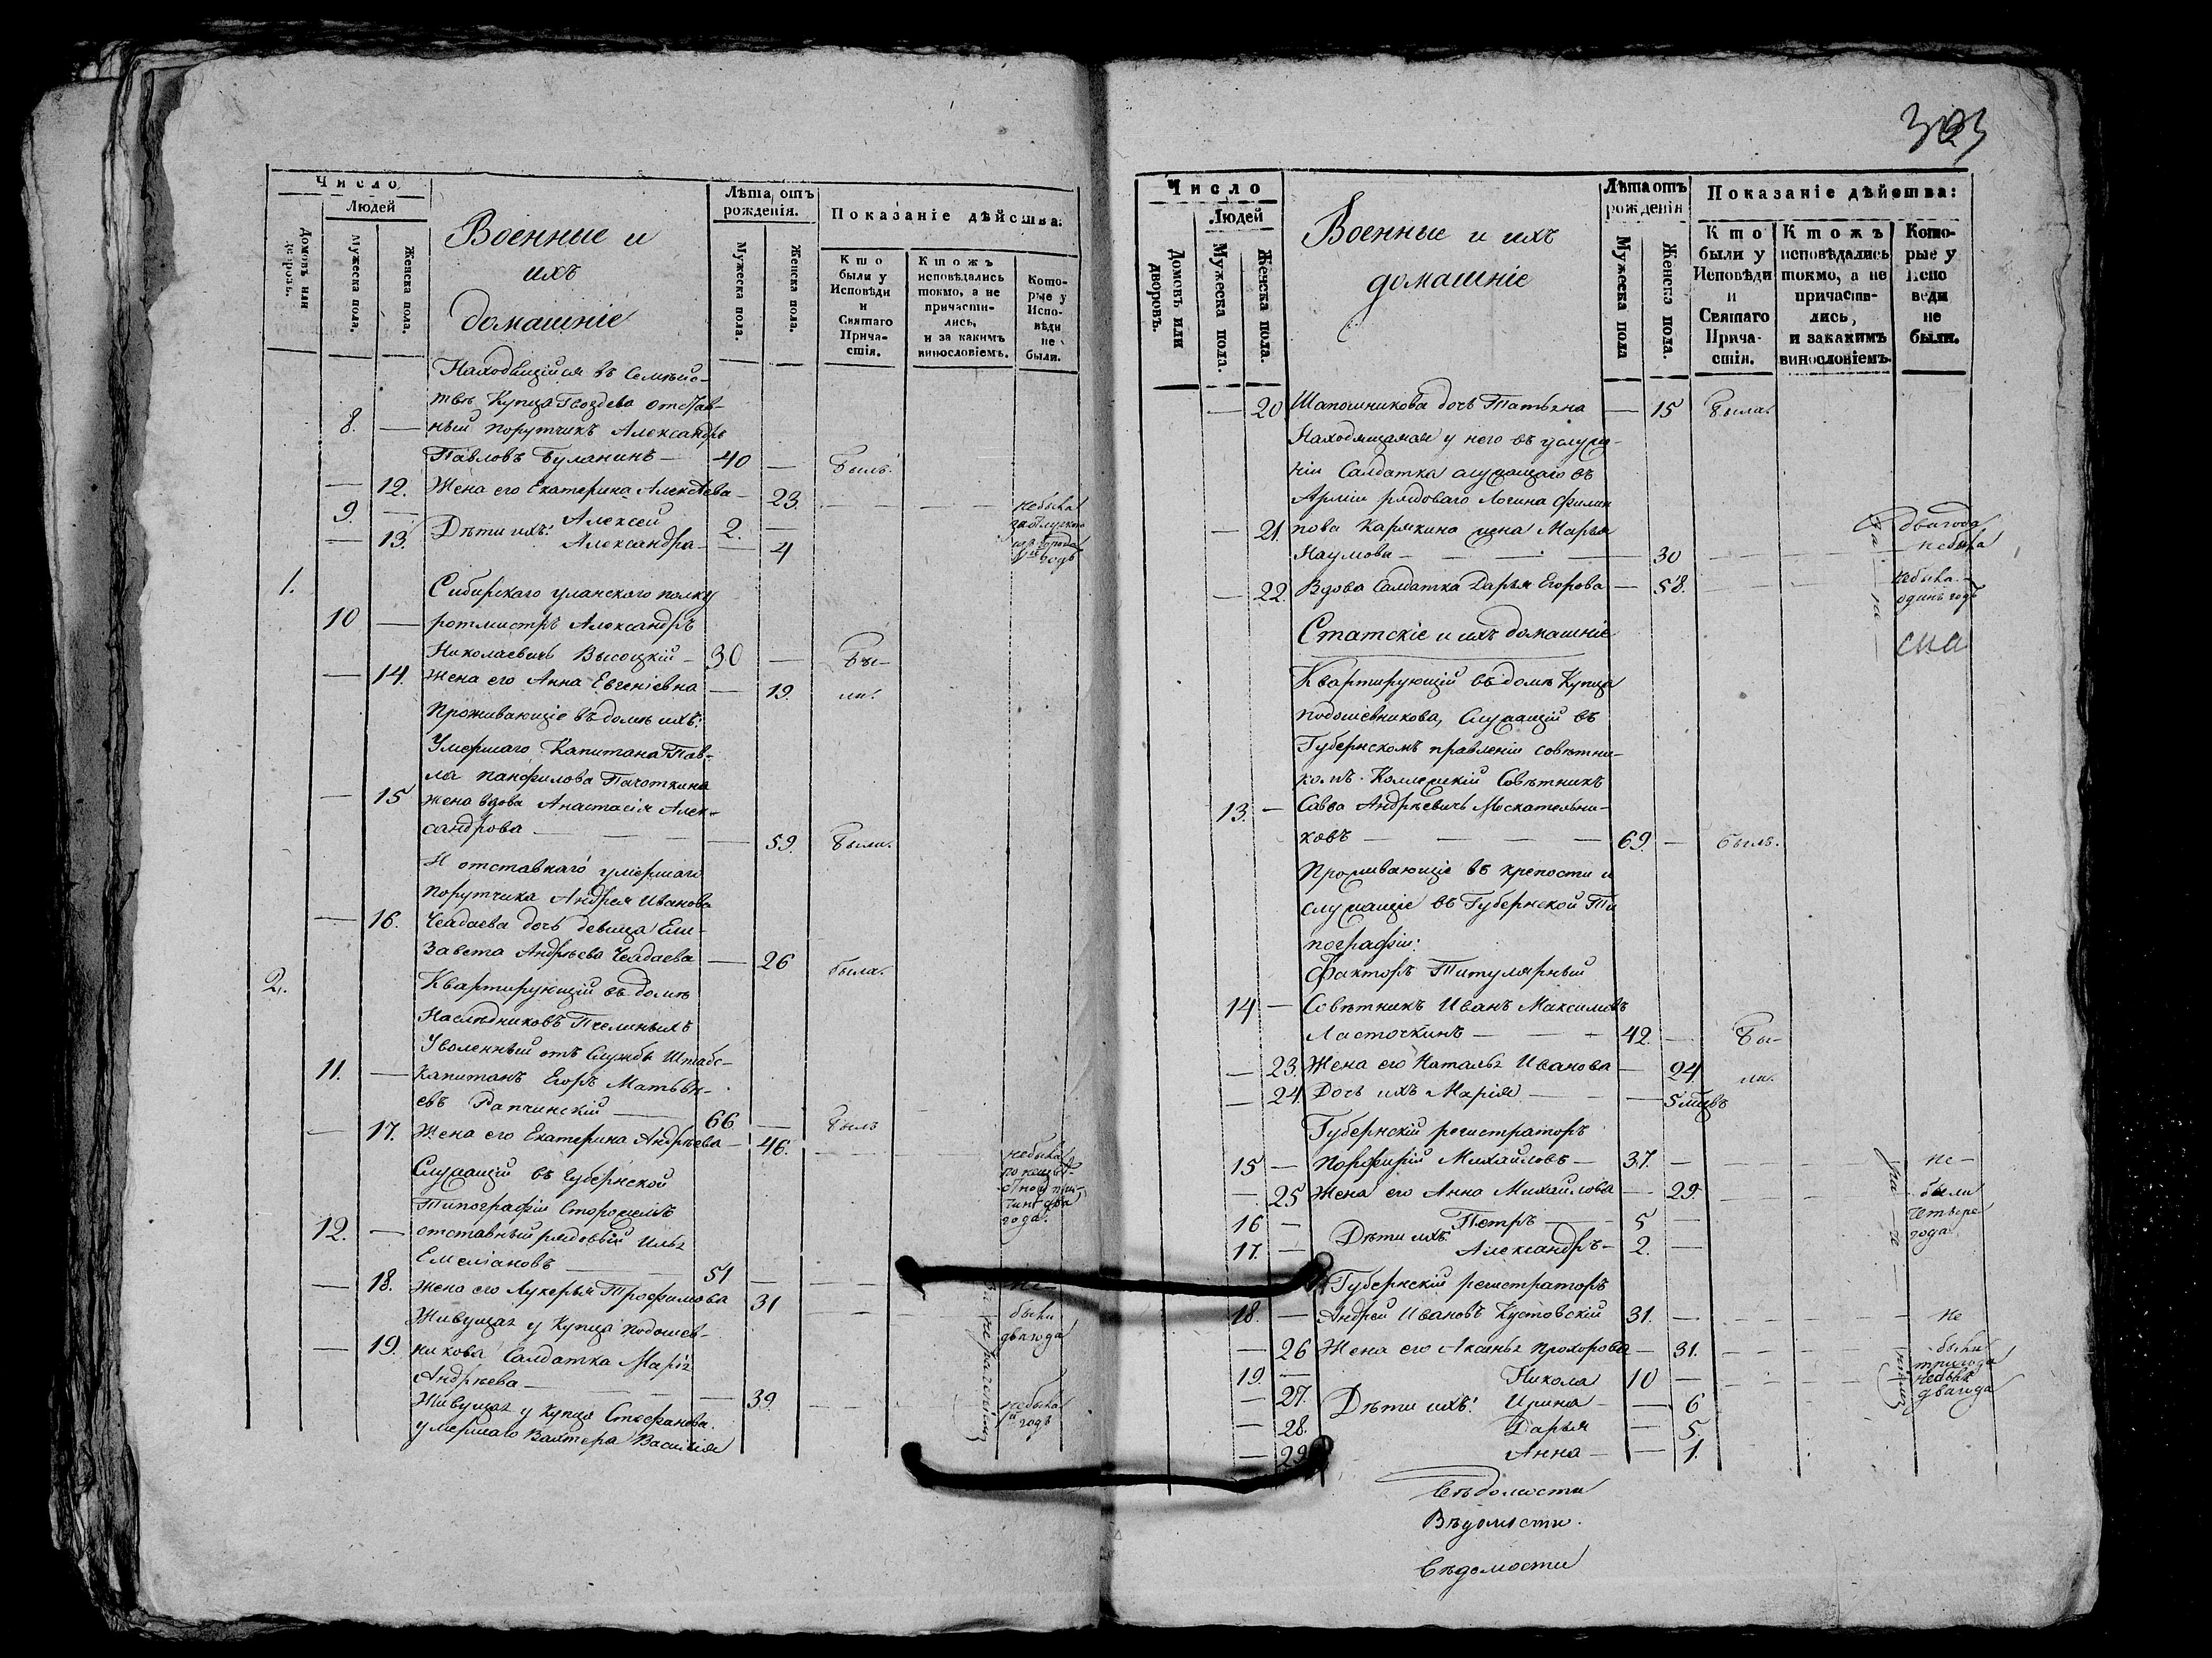 Число
Людей
Домовъ или дворовъ.
Мужеска пола.
Женска пола.
Военные и
ихъ
домашніе
Лѣта отъ
рожденія.
Мужеска пола.
Женска пола.
Показаніе дѣйства:
Кто
были у
Исповѣди
и
Святаго
Прича-
стія.
Ктожъ
исповѣдались
токмо, а не
причасти-
лись,
и за какимъ
винословіемъ.
Кото-
рые у
Испо-
вѣди
не
были.
Находящійся въ Семѣйс-
твѣ Купца Гвоздева отстав-
8. — ный порутчикъ Александръ
Павловъ Буланинъ — 40 — Былъ.
— 12. Жена его Екатерина Алексѣева — 23. небыла
9. — Дѣти ихъ: Алексей 2. —
— 13. Александра — 4
1. Сибирскаго уланскаго полку
10 — ротмистръ Александръ
Николаевичь Высоцкій — 30 — Бы-
— 14. Жена его Анна Евгеніевна — 19. ли.
Проживающіе въ домѣ ихъ:
Умершаго Капитана Пав-
ла Панфилова Пачоткина
— 15 жена вдова Анастасія Алек-
сандрова — 59. Были.
И отставнаго умершаго
порутчика Андрея Иванова
— 16. Чеадаева дочь девица Ели-
завета Андрѣева Чеадаева — 26 была.
2. Квартирующій въ домѣ
Наслѣдниковъ Пчелиныхъ
Уволенный отъ Службы Штабс-
11. — Капитанъ Егоръ Матвѣ-
евъ Рапчинскій — 66 — Былъ
— 17. Жена его Екатерина Андрѣева — 46. небыла
Служащій въ Губернской
Типографіи Сторожемъ
12. — отставный рядовый Илья
Емеліановъ — 51 — не
— 18. Жена его Лукерья Трофимова 31 были
два года
Живущая у Купца Подошев-
— 19. никова Салдатка Марія
Андрѣева — 39. небыла
1й годъ
Живущая у Купца Стефанова.
умершаго Вахтера Василія
303
Число
Людей
Домовъ или дворовъ.
Мужеска пола.
Женска пола.
Военные и ихъ
домашніе
Лѣта отъ
рожденія
Мужеска пола
Женска пола.
Показаніе дѣйства:
Кто
были у
Исповѣди
и
Святаго
Прича-
стія.
Ктожъ
исповѣдались
токмо, а не
причасти-
лись,
и закакимъ
винословіемъ.
Кото-
рые у
Испо
веди
не
были.
— 20 Шапошникова дочь Татьяна — 15 Была.
Находящаяся у него въ услуже-
ніи Салдатка служащаго въ
Арміи рядоваго Логина Филип
— 21. пова Карякина жена Марья два года
Наумова — 30 небыла
— 22. Вдова Салдатка Дарья Егорова — 58. небыла
одинъ годъ
Статскіе и ихъ домашніе
Квартирующій въ домѣ Купца
Подошевникова, Служащій въ
Губернскомъ правленіи совѣтни-
комъ Коллежскій Совѣтникъ
13. — Савва Андрѣевичь Москательни-
ковъ — 69. — былъ.
Проживающіе въ крепости и
служащіе въ Губернской Ти
пографіи:
Факторъ Титулярный
14 — Совѣтникъ Иванъ Максимовъ
Ласточкинъ — 42. — Бы-
— 23. Жена его Наталья Иванова — 24. ли.
— 24. Дочь ихъ Марія — 5 мцвъ
Губернскій регистраторъ
15 — Порфирій Михайловъ — 37. — не-
— 25 Жена его Анна Михайлова — 29. были
16 — Дѣти ихъ: Петръ — 5 — четыре
17. — Александръ — 2. — года.
Губернскій регистраторъ
18. — Андрей Ивановъ Кустовскій 31. — не
— 26 Жена его Аксинья Прохорова — 31. были
три года
19. — Никола 10 — небылъ
два года
— 27. Дѣти ихъ: Ирина — 6
— 28. Дарья — 5.
— 29 Анна — 1.
Вѣдомости
Вѣдомсти.
Вѣдомости